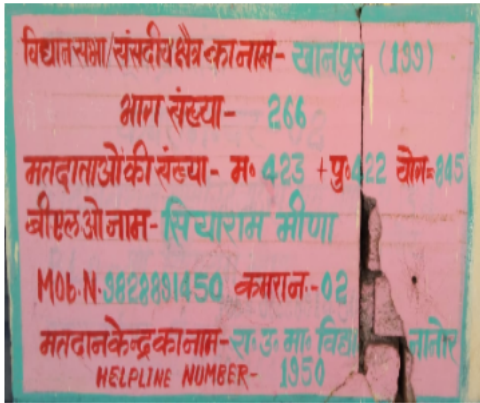 विधान सभा/संसदीय क्षेत्र का नाम- खानपुर (199)
भाग संख्या- 266
मतदाताओं की संख्या- म॰ 423 + पु॰ 422 योग=845
बीएलओ नाम- सियाराम मीणा
Mob.N. 9828891450 कमरा न.-02
मतदान केन्द्र का नाम- रा॰ उ॰ मा॰ नातोर
HELPLINE NUMBER- 1950